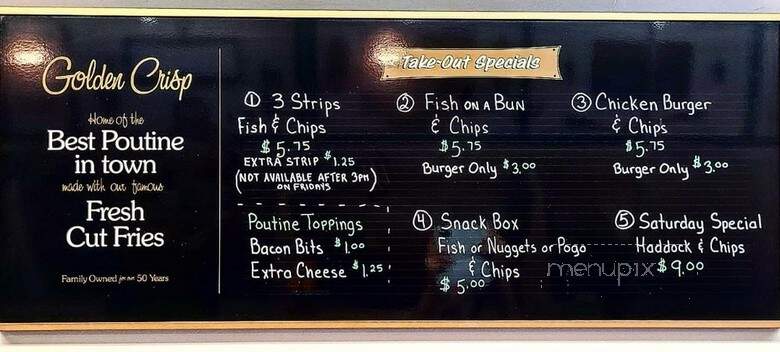 Golden Crisp
Home of the
Best Poutine
in town
made with our famous
Fresh
Cut Fries
Family Owned for over 50 Years
Take-Out Specials
① 3 Strips
Fish & Chips
$5.75
EXTRA STRIP $1.25
(NOT AVAILABLE AFTER 3PM
ON FRIDAYS)
② FISH ON A BUN
& Chips
$5.75
Burger Only $3.00
③ Chicken Burger
& Chips
$5.75
Burger Only $3.00
Poutine Toppings
Bacon Bits $1.00
Extra Cheese $1.25
④ Snack Box
Fish or Nuggets or Pogo
& Chips
$5.00
⑤ Saturday Special
Haddock & Chips
$9.00
menupix